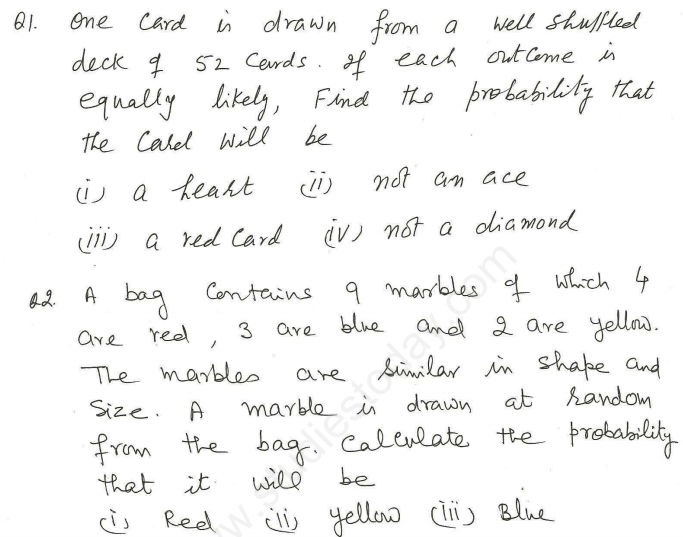 Q1. One Card is drawn from a well shuffled
deck of 52 Cards. If each outcome is
equally likely, Find the probability that
the Card will be
(i) a heart (ii) not an ace
(iii) a red Card (iv) not a diamond
Q2. A bag Contains 9 marbles of which 4
are red, 3 are blue and 2 are yellow.
The marbles are similar in shape and
Size. A marble is drawn at random
from the bag. Calculate the probability
that it will be
(i) Red (ii) yellow (iii) Blue
www.studiestoday.com